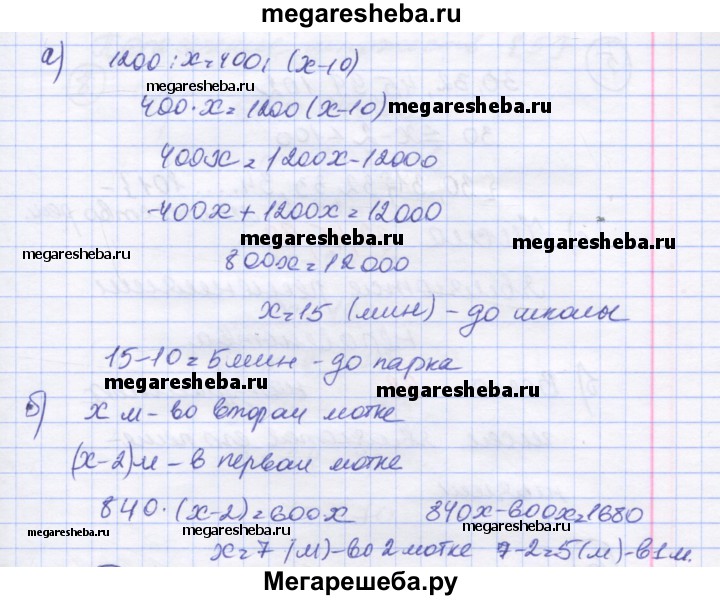 megaresheba.ru
а) 1200 : x = 400 : (x-10)
megaresheba.ru
400·x = 1200(x-10) megaresheba.ru
400x = 1200x-12000
-400x + 1200x = 12000
megaresheba.ru megaresheba.ru megaresheba.ru
800x = 12000
x = 15 (мин) - до школы
15-10 = 5 мин - до парка
megaresheba.ru megaresheba.ru
б) x м - во втором мотке
(x-2)м - в первом мотке
840·(x-2) = 600x 840x-600x = 1680
megaresheba.ru megaresheba.ru
x = 7 (м) - во 2 мотке 7-2 = 5 (м) - в 1 м.
megaresheba.ru
Мегарешеба.ру